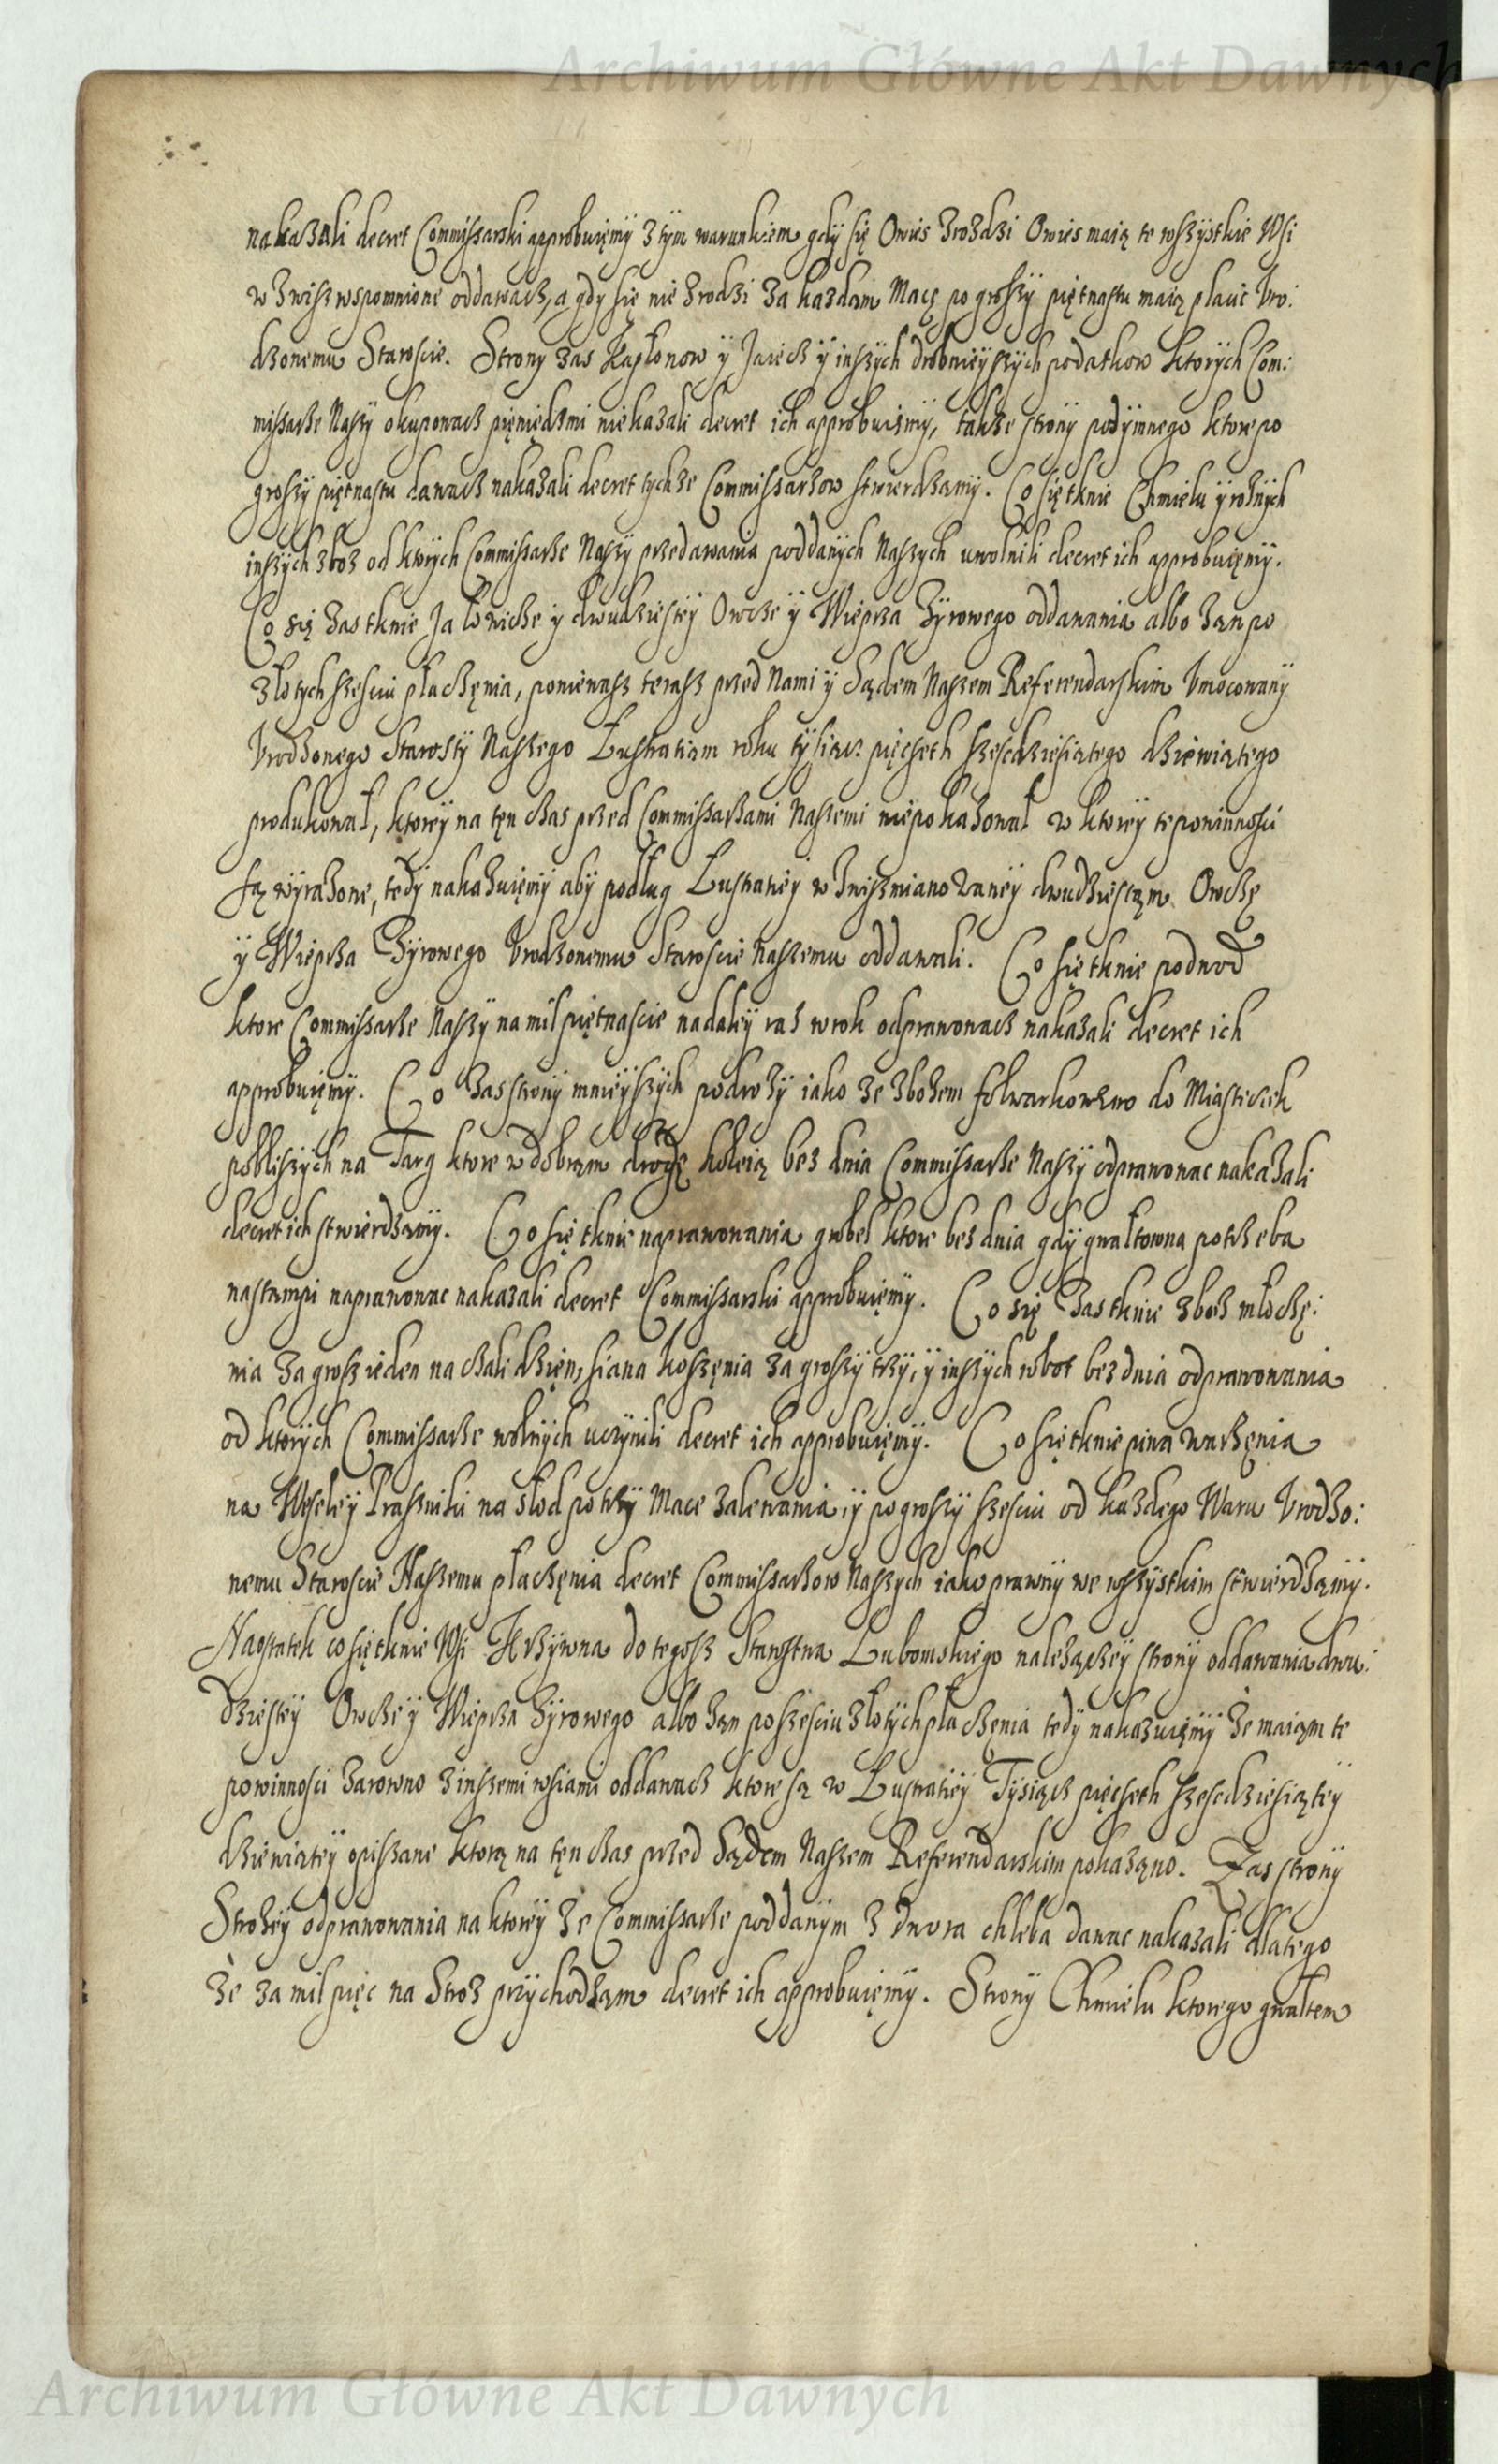 Archiwum Główne Akt Dawnych
nakazali decret Commissarski approbuięmy z tym warunkiem gdy się Owies zrodzi Owies maią te wszystkie Wsi
w zwisz wspomnione oddawacz, a gdy się nie zrodzi za kazdam Macę po groszy piętnastu maią płacic Uro:
dzonemu Staroscie. Strony zas Kapłonow y Jaiecz y inszych drobnieyszych podatkow ktorych Com:
missarze Naszy okupowacz pięniędzmi niekazali decret ich approbuięmy, takze strony podymnego ktore po
groszy piętnastu dawacz nakazali decret tychze Commissarzow stwierdzamy. Co się tknie Chmielu y roznych
inszych zboz od ktorych Commissarze Naszy przedawania poddanych Naszych uwolnili decret ich approbuięmy.
Co się zas tknie Jałowicze y dwudziestey Owcze y Wieprza Zyrowego oddawania albo zan po
złotych szesciu płaczęnia, poniewasz terasz przed Nami y Sądem Naszem Referendarskim Umocowany
Urodzonego Starosty Naszego Lustratiam roku tysiącz pięcseth szescdziesiątego dziewiątego
produkował, ktorey na tęn czas przed Commissarzami Naszemi niepokazował w ktorey te powinnosci
są wyrazone, tedy nakazuięmy aby podług Lustratiey w zwiszmianowaney dwudziestąm Owczę
y Wieprza Zyrowego Urodzonemu Staroscie Naszemu oddawali. Co się tknie podwod
ktore Commissarze Naszy na mil piętnascie nadaley raz w rok odprawowacz nakazali decret ich
approbuięmy. Co zas strony mnieyszych podrozy iako ze zbozem folwarkowęm do Miasteczek
pobliszych na Targ ktore w dobrąm drogę koleią bez dnia Commissarze Naszy odprawowac nakazali
decret ich stwierdzamy. Co się tknie naprawowania grobel ktore bez dnia gdy gwałtowna potrzeba
nastąmpi naprawowac nakazali decret Commissarski approbuięmy. Co się zas tknie zboz młoczę:
nia za grosz ieden na czali dzięn, siana koszęnia za groszy trzy, y inszych robot bez dnia odprawowania
od ktorych Commissarze wolnych uczynili decret ich approbuięmy. Co się tknie piwa warzęnia
na Wesełey Prasznikі na słod po trzy Mace zalewania, y po groszy szesciu od kazdego Waru Urodzo:
nemu Staroscie Naszemu płaczęnia decret Commissarzow Naszych iako prawny we wszystkim stwierdzamy.
Naostatek co się tknie Wsi Krzywna do tegosz Starostwa Lubomskiego nalezączey strony oddawania dwu:
dziestey Owcze y Wieprza Zyrowego albo zan po szesciu złotych płaczęnia tedy nakazuięmy ze maiąm te
powinnosci zarowno z inszemi wsiami oddawacz ktore są w Lustratiey Tysiącz pięcseth szescdziesiątey
dziewiątey opiszane ktorą na tęn czas przed Sądem Naszem Referendarskim pokaząno. Zas strony
Strozey odprawowania na ktorey ze Commissarze poddanym z dwora chleba dawac nakazali dlatego
ze za mil pięc na Stroz przychodząm decret ich approbuięmy. Strony Chmielu ktorego gwałtem
Archiwum Główne Akt Dawnych